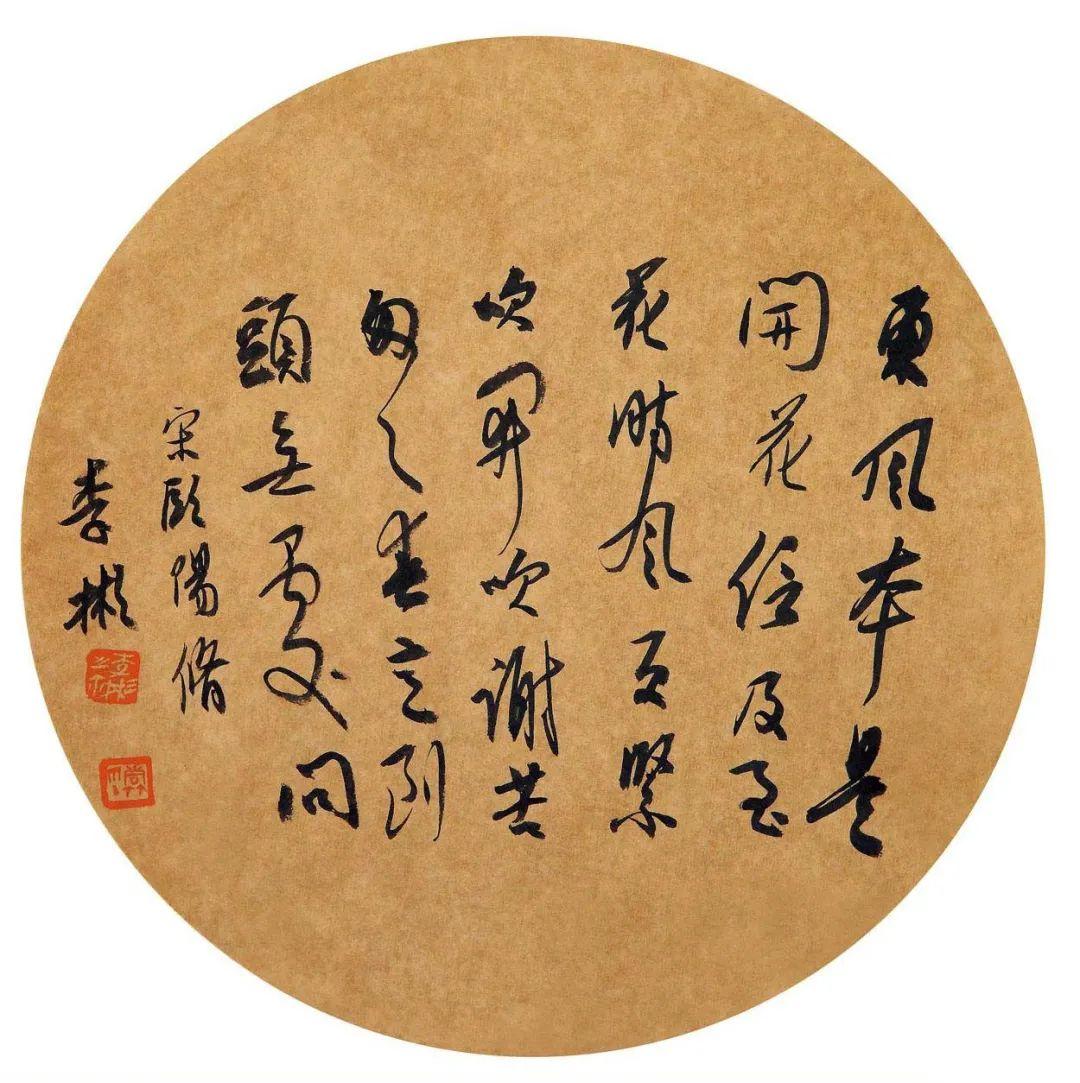 東風本是
開花信及至
花時風更緊
吹開吹謝苦
匆々春意到
頭無處問
宋歐陽脩
李彬